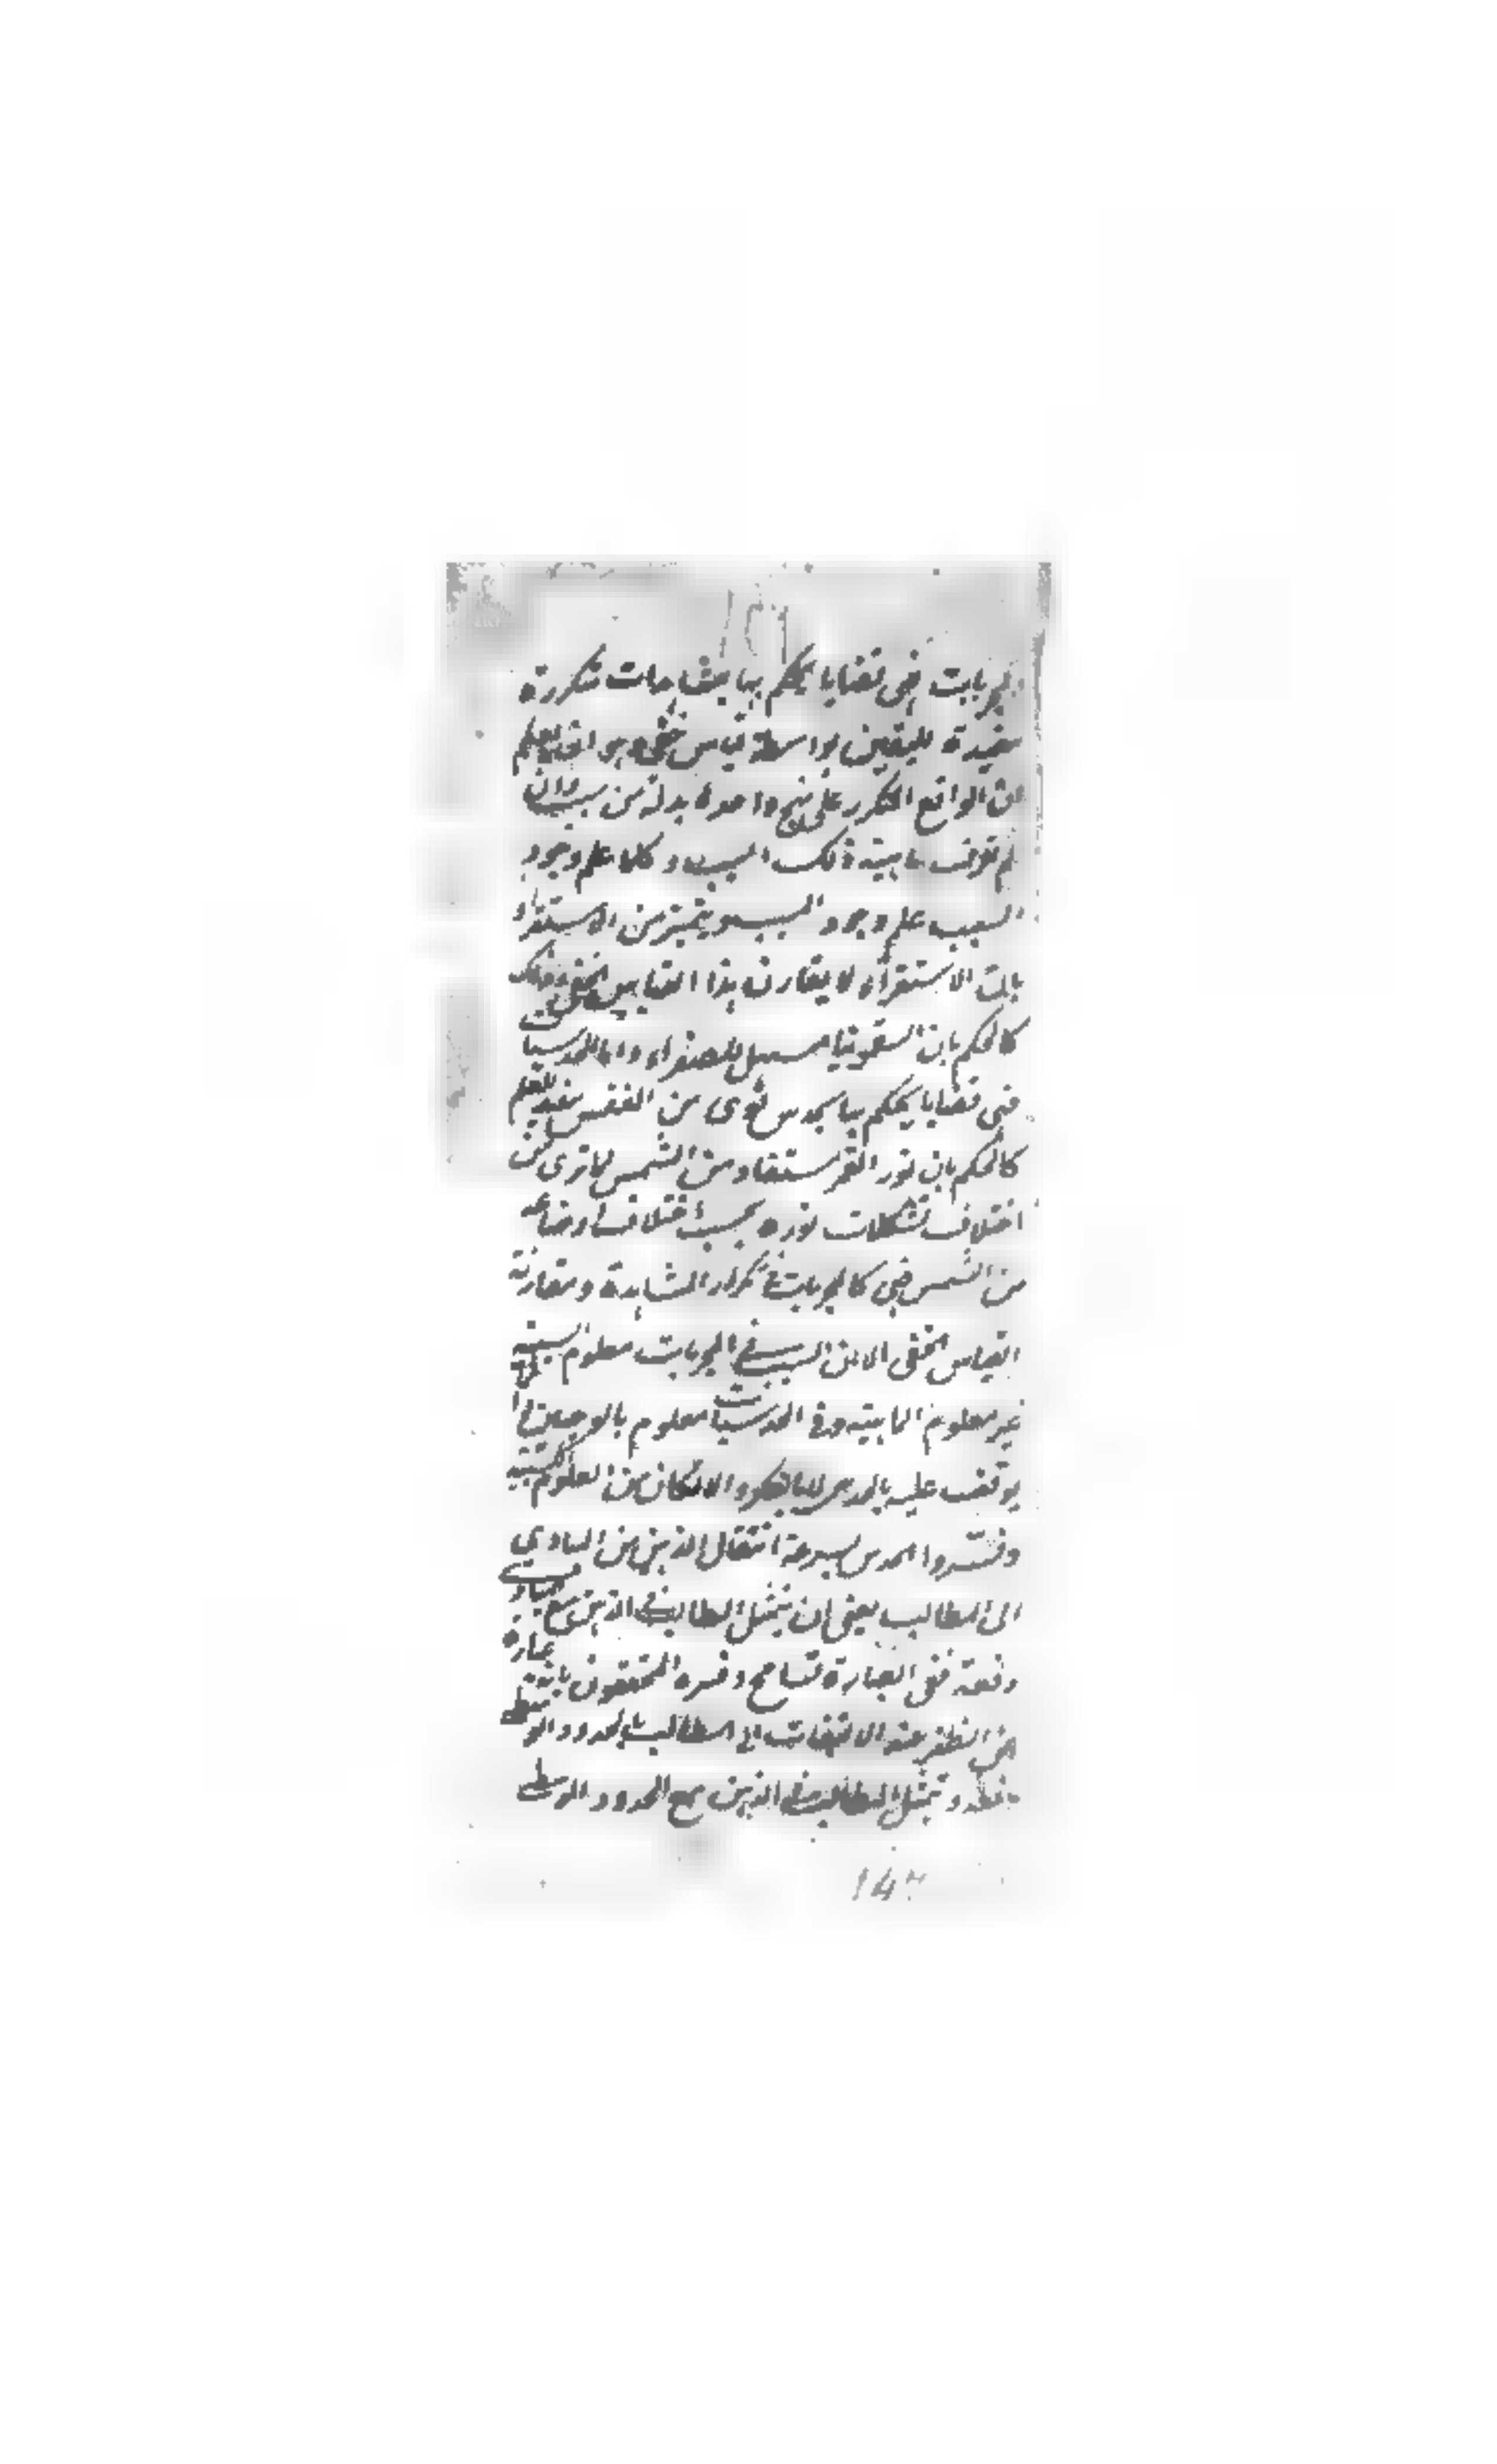 المجربات فهي قضايا يحكم بها بمشاهدات متكررة
مفيدة لليقين بواسطة قياس خفي وهو انه يعلم
ان الواقع المتكرر على نهج واحد لا بد له من سبب وان
لم تعرف ماهية ذلك السبب وكلما علم وجود
السبب علم وجود المسبب ويتميز من الاستقراء
بان الاستقراء لا يقارن هذا القياس الخفي وذلك
كالحكم بان السقمونيا مسهل للصفراء واما الحدسيات
فهي قضايا يحكم بها بحدس قوى من النفس مفيد للعلم
كالحكم بان نور القمر مستفاد من الشمس لما ترى من
اختلاف تشكلات نوره بحسب اختلاف اوضاعه
من الشمس فهي كالمجربات في تكرار المشاهدة ومقارنة
القياس الخفي الا ان السبب في المجربات معلوم السببية
غير معلوم الماهية وفي الحدسيات معلوم بالوجهين
يوقف عليه بالحدس لا بالفكر والا لكان من العلوم الكسبية
وفسروا الحدس بسرعة انتقال الذهن من المبادي
الى المطالب يعني ان يتمثل المطالب في الذهن مع المبادي
دفعة ففي العبارة تسامح وفسره المحققون بانه عبارة
عن الظفر عند الالتفات الى المطالب بالحدود الوسطى
دفعة وتمثل المطالب في الذهن مع الحدود الوسطى